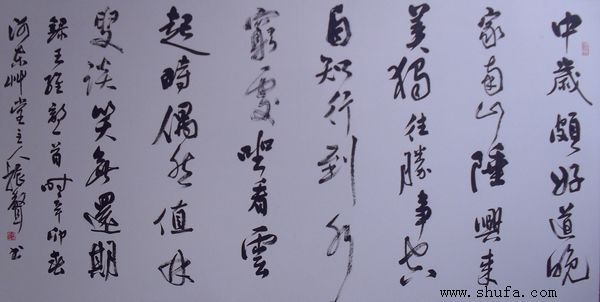 中歲頗好道晚
家南山陲興來
美獨往勝事空
自知行到水
窮處坐看雲
起時偶然值林
叟談笑無還期
錄王維詩一首時辛卯春
河東艸堂主人振聲書
www.shufa.com